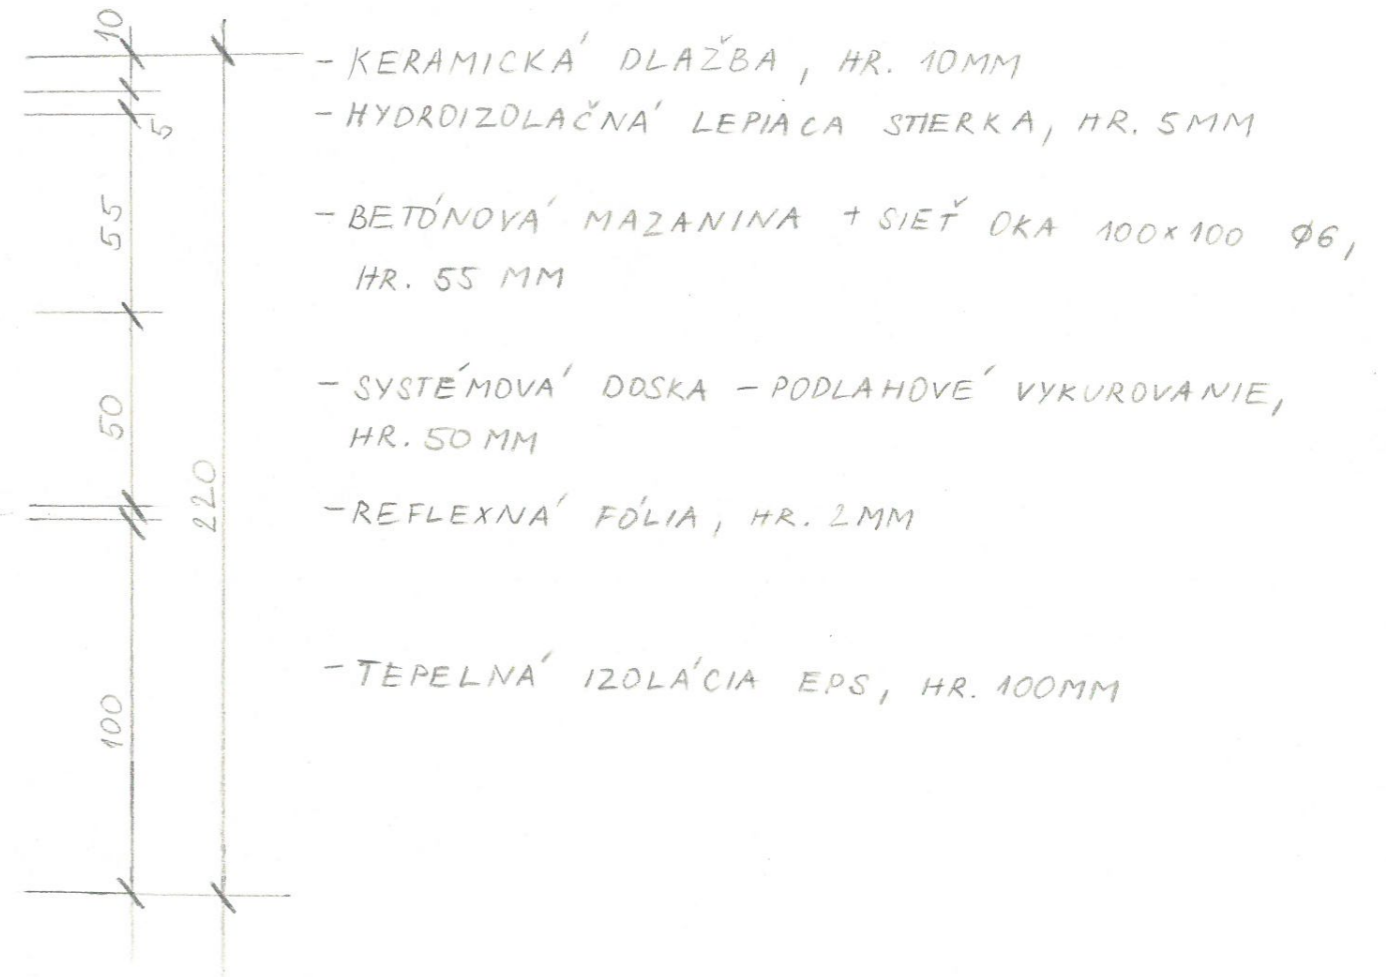 10
- KERAMICKÁ DLAŽBA, HR. 10MM
- HYDROIZOLAČNÁ LEPIACA STIERKA, HR. 5MM
5
55
- BETÓNOVÁ MAZANINA + SIEŤ OKA 100x100 Ø6,
HR. 55 MM
- SYSTÉMOVÁ DOSKA - PODLAHOVÉ VYKUROVANIE,
HR. 50 MM
50
220
- REFLEXNÁ FÓLIA, HR. 2MM
- TEPELNÁ IZOLÁCIA EPS, HR. 100MM
100